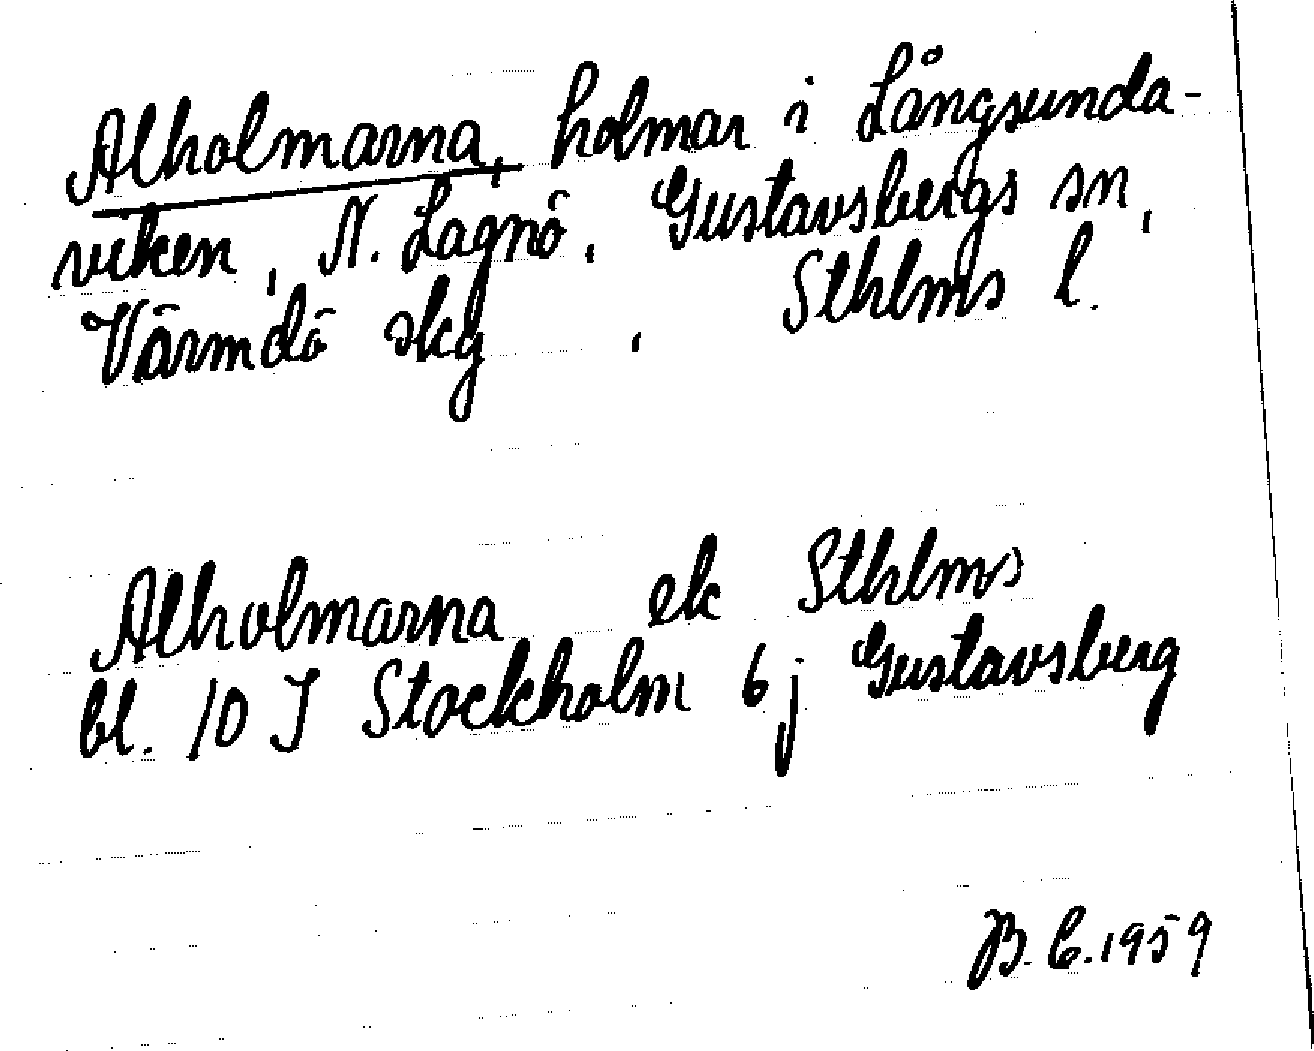 Alholmarna, holmar i Långsunda-
viken, N. Lagnö, Gustavsbergs sn,
Värmdö skg, Sthlms l.
Alholmarna ek Sthlms
bl. 10 J Stockholm 6 j Gustavsberg
B. C. 1959